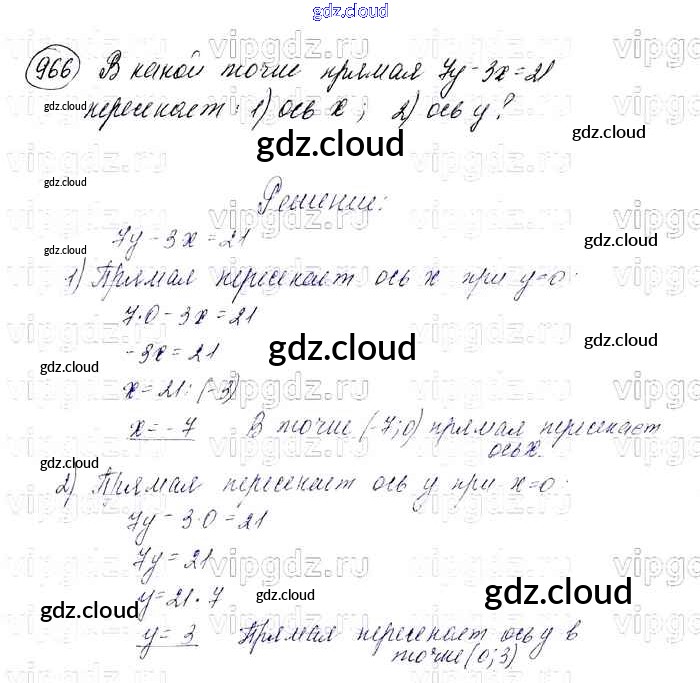 gdz.cloud
966 В какой точке прямая 7y - 3x = 21
gdz.cloud
пересекает: 1) ось x; 2) ось y?
gdz.cloud
gdz.cloud
Решение:
7y - 3x = 21
gdz.cloud
gdz.cloud
1) Прямая пересекает ось x при y=0.
7·0 - 3x = 21
gdz.cloud
-3x = 21
gdz.cloud
gdz.cloud
x = 21 : (-3)
x = -7 В точке (-7; 0) прямая пересекает
ось x.
gdz.cloud
2) Прямая пересекает ось y при x=0.
7y - 3·0 = 21
gdz.cloud
7y = 21
y = 21 · 7
gdz.cloud
gdz.cloud
gdz.cloud
y = 3 Прямая пересекает ось y в
точке (0; 3)